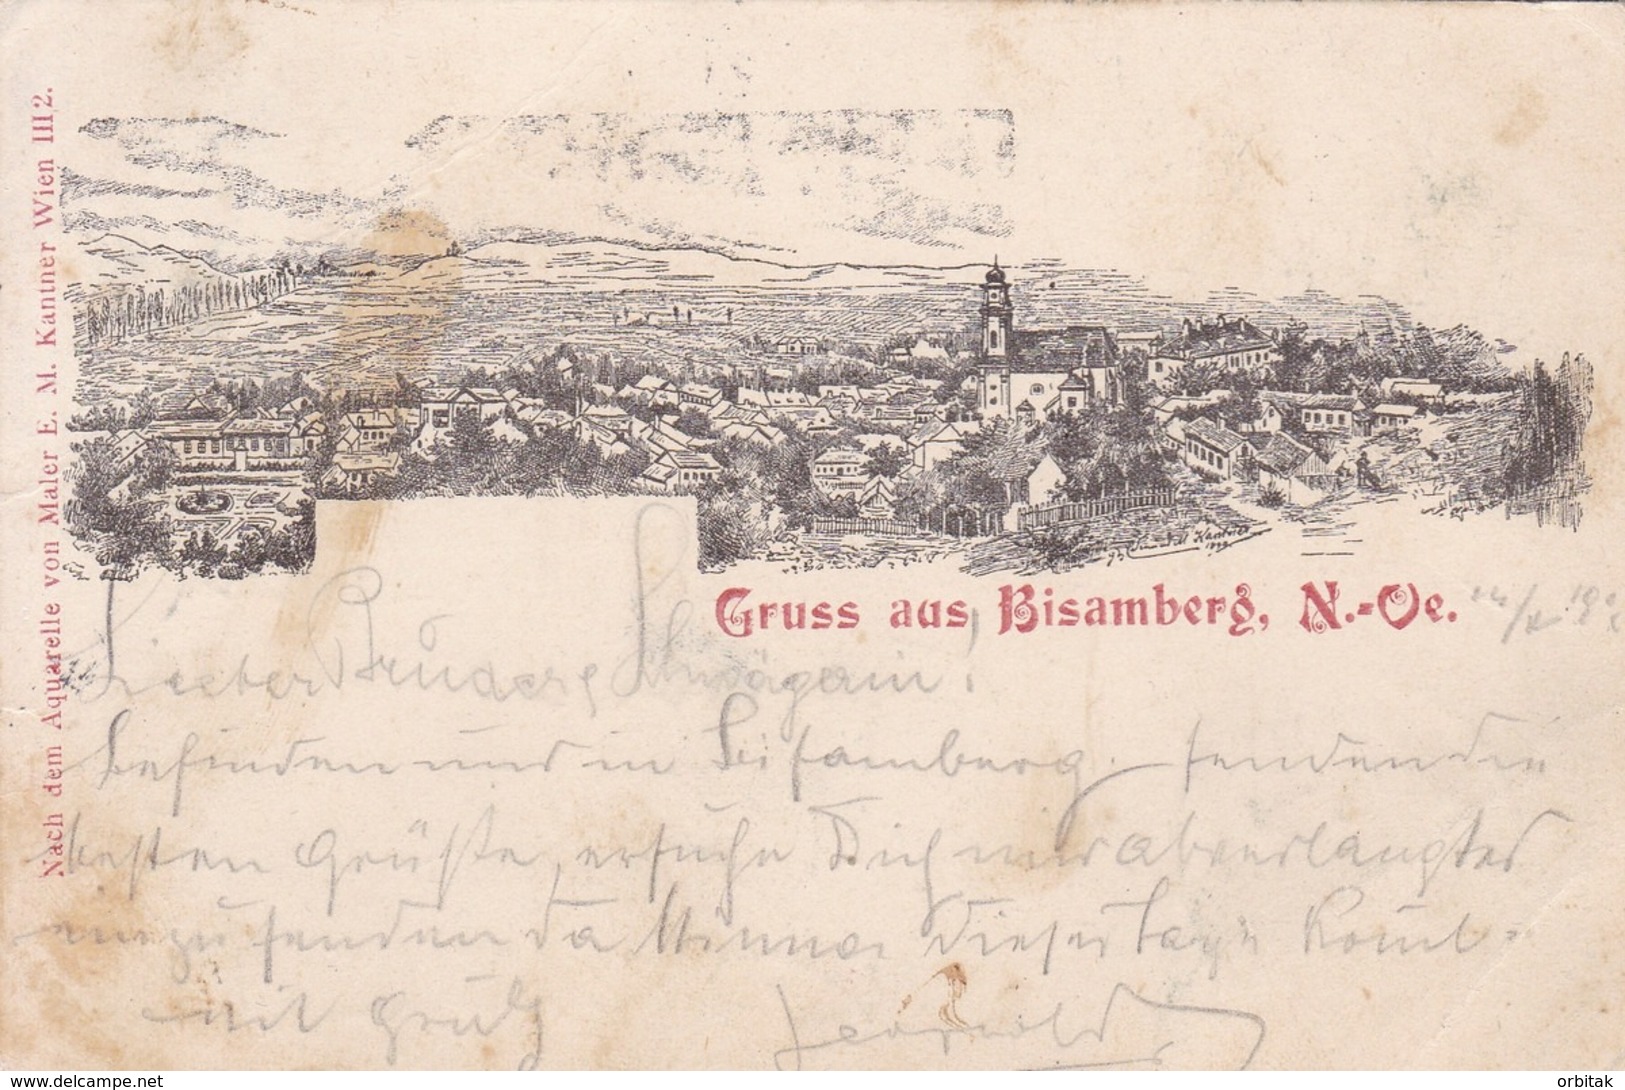 Nach dem Aquarelle von Maler E. M. Kantner Wien III 2.
Kantner
Gruss aus Bisamberg, N.-Oe.
Lieber Bruder & Schwägerin!
befinden uns in Bisamberg. senden die
besten Grüße, ersuche Dich mir abverlangtes
zu senden da Minna dieser Tage kommt
mit Gruß Leopold
www.delcampe.net
orbitak